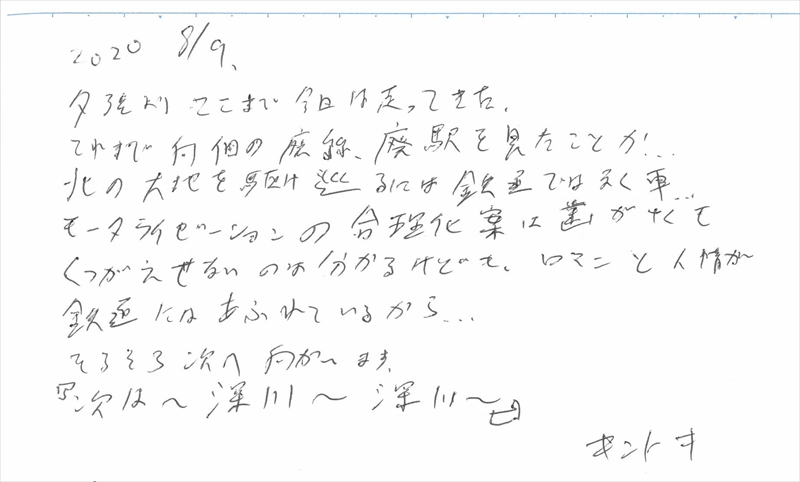 2020 8/9、
夕張よりここまで今日は走ってきた。
それまで何個の廃線、廃駅を見たことか…
北の大地を駆け巡るには鉄道ではなく車…
モータライゼーションの合理化案は歯がゆくも
くつがえせないのは分かるけども、ロマンと人情が
鉄道にはあふれているから…
そろそろ次へ向かいます。
『次は〜深川〜深川〜』
キントキ